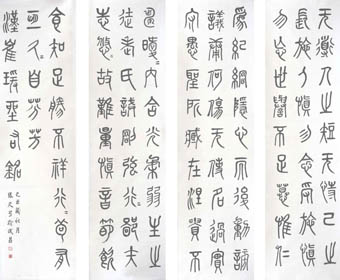 无道人之短无説己之
長施人慎勿念受施慎
勿忘世譽不足慕惟仁
為紀綱隱心而後動謗
議庸何傷无使名過實
守愚聖所臧在涅貴不
淄曖〻内含光柔弱生之
徒老氏誡剛強行〻鄙夫
志悠〻故難量慎言節飲
食知足勝不祥行之苟有
恒久〻自芬芳
漢崔瑗座右銘
己丑蘭秋月